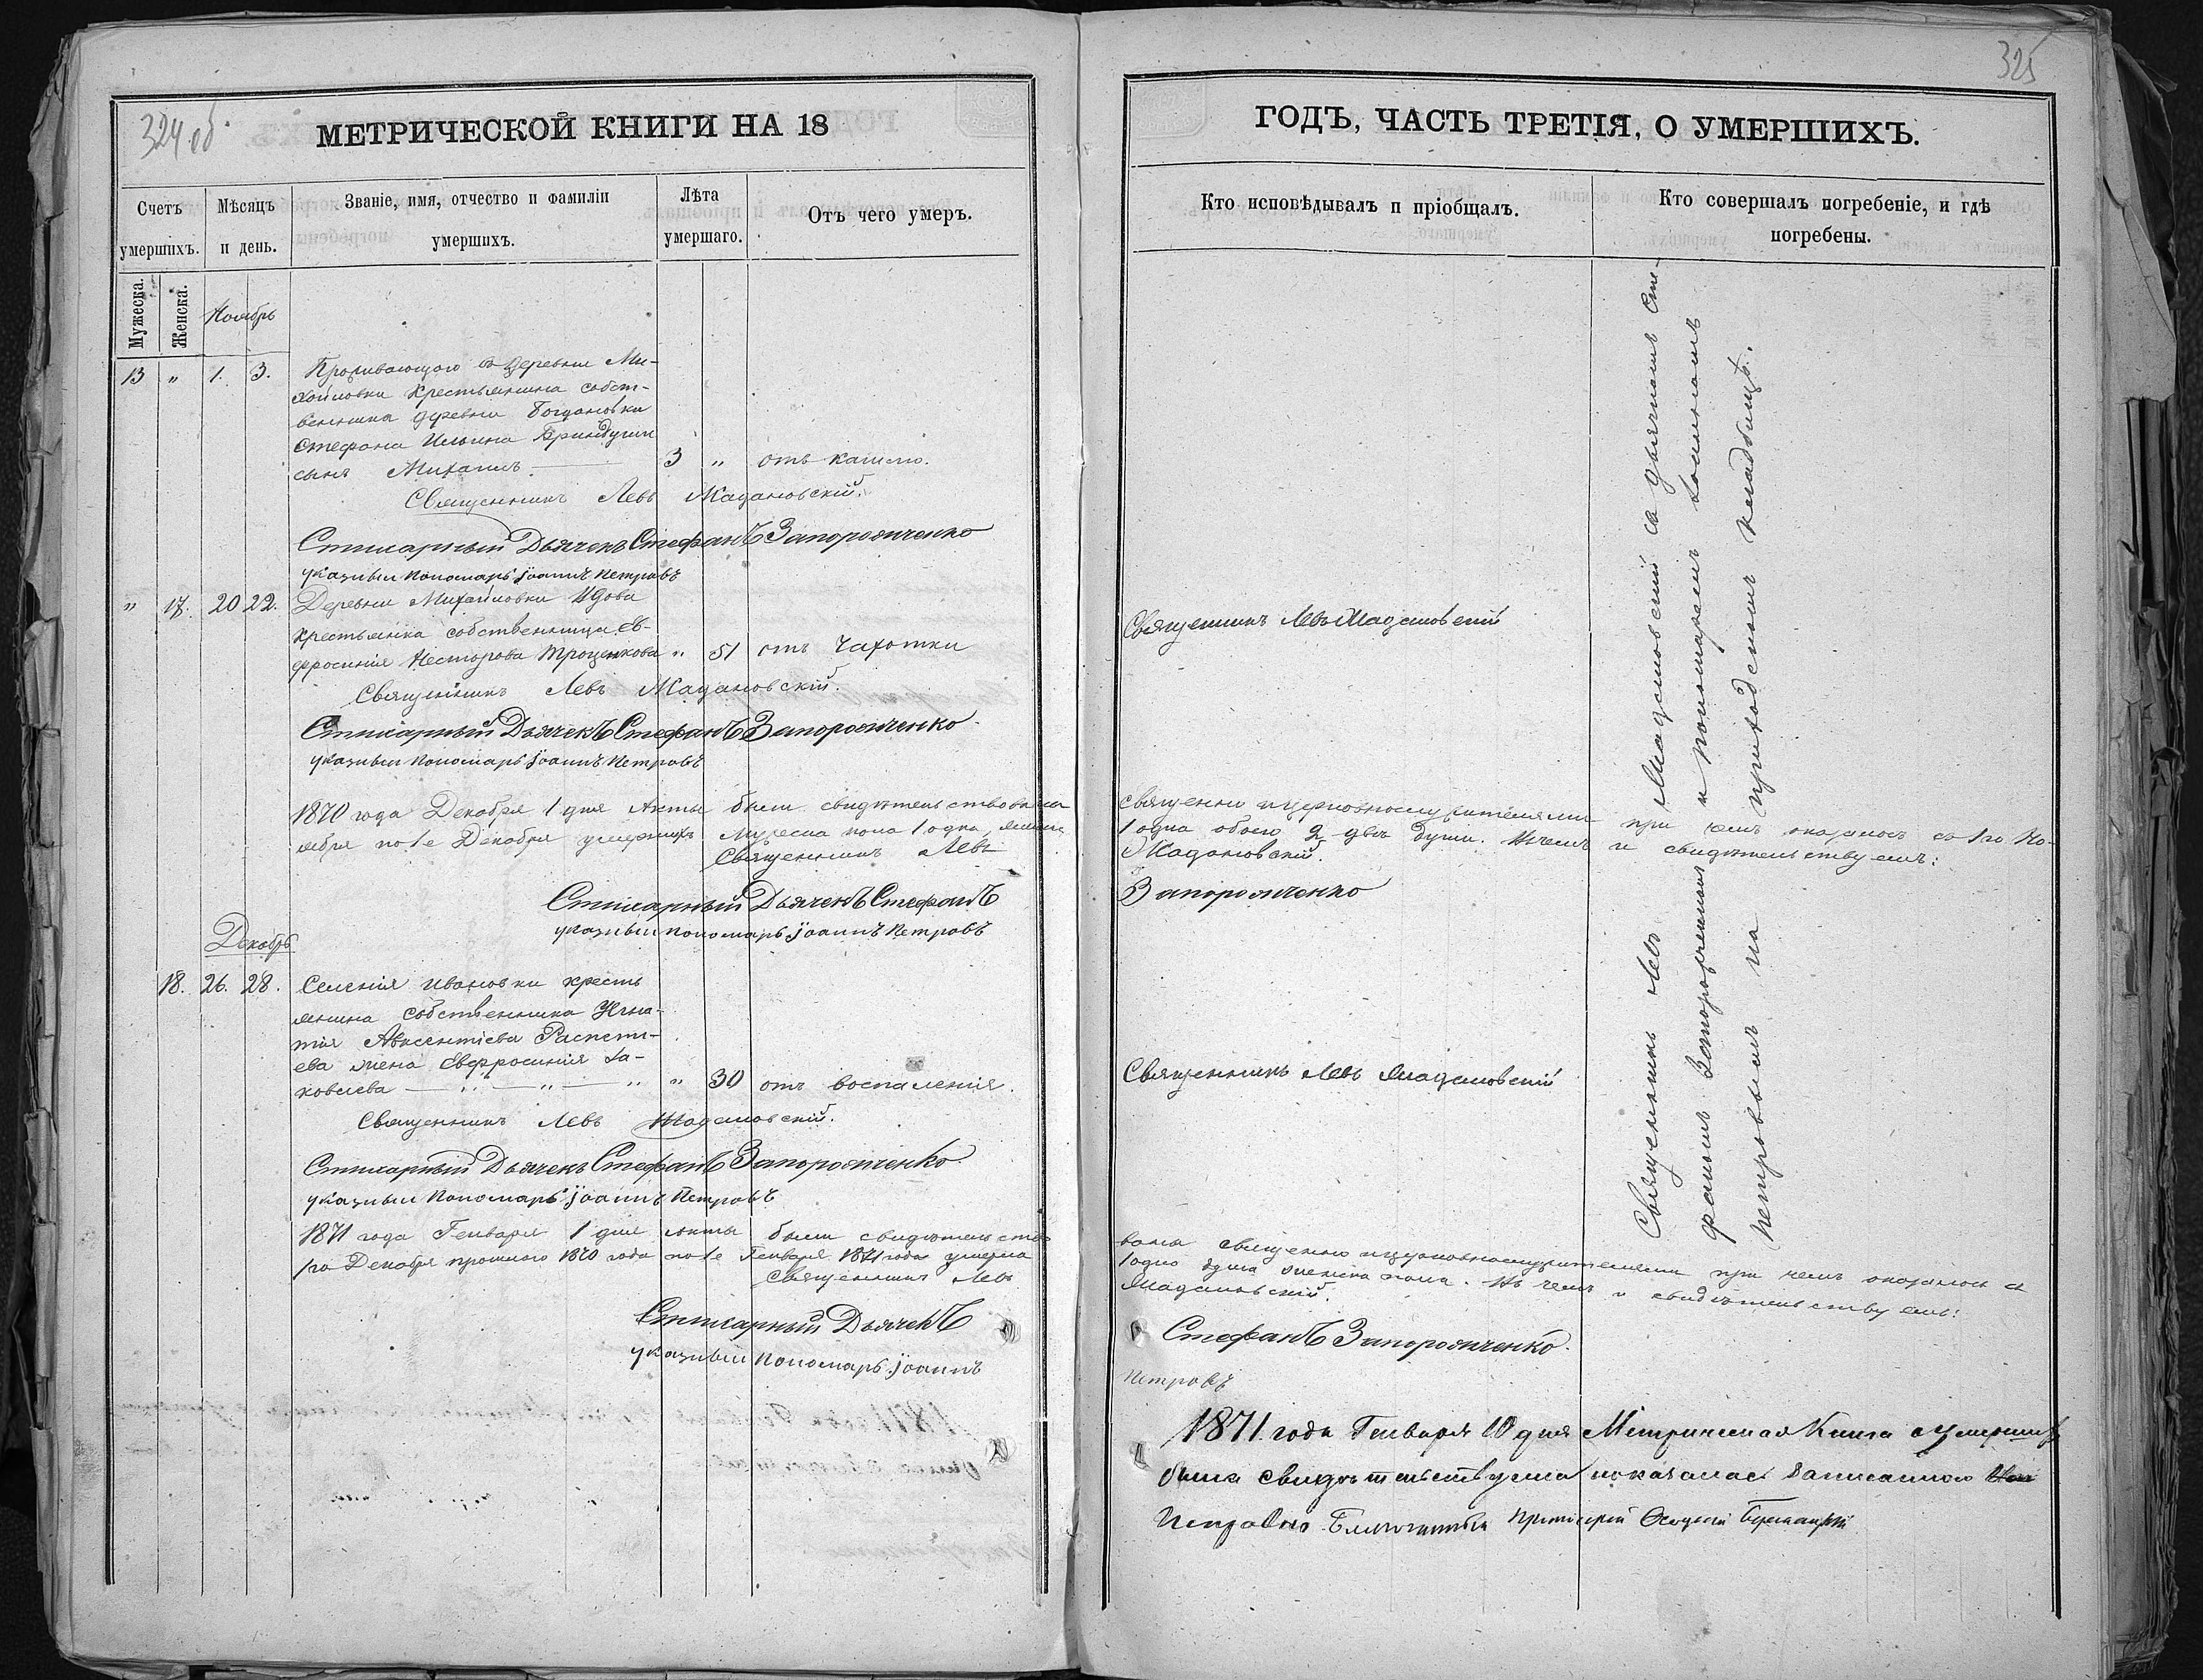 324 об.
МЕТРИЧЕСКОЙ КНИГИ НА 18
Счетъ умершихъ.
Мѣсяцъ и день.
Званіе, имя, отчество и фамиліи умершихъ.
Лѣта умершаго.
Отъ чего умеръ.
Мужеска.
Женска.
Ноябрь
13 " 1. 3. Проживающаго въ деревни Ми-
хайловки Крестьянина собст-
венника деревни Богдановки
Стефана Ильина
сынъ Михаилъ. 3 " отъ кашлю.
Священникъ Левъ Жадановскій.
Стихарный Дьячекъ Стефанъ Запорожченко
указный Пономарь Іоаннъ Петровъ
" 17. 20 22. Деревни Михайловки Вдова
крестьянка собственница Ев-
фросинія Несторова Троценкова " 51 отъ Чахотки
Священникъ Левъ Жадановскій.
Стихарный Дьячекъ Стефанъ Запорожченко
указный Пономарь Іоаннъ Петровъ
1870 года Декабря 1 дня Акты были свидѣтельствованы
ября по 1е Декабря умершихъ Мужеска пола 1 одна, женска
Священникъ Левъ
Стихарный Дьячекъ Стефанъ
указный пономарь Іоаннъ Петровъ
Декабрь
18. 26. 28. Селенія Ивановки кресть
янина Собственника Игна-
тія Авксентіева
ева жена Евфросинія Іа-
ковлева " 30 отъ воспаленія.
Священникъ Левъ Жадановскій.
Стихарный Дьячекъ Стефанъ Запорожченко
указный Пономарь Іоаннъ Петровъ
1871 года Генваря 1 дня Акты были свидѣтельство
1го Декабря прошлого 1870 года по 1е Генваря 1871 года умерла
Священникъ Левъ
Стихарный Дьячекъ
указный Пономарь Іоаннъ
325
ГОДЪ, ЧАСТЬ ТРЕТІЯ, О УМЕРШИХЪ.
Кто исповѣдывалъ и пріобщалъ.
Кто совершалъ погребеніе, и гдѣ погребены.
Священникъ Левъ Жадановскій
священно и церковнослужителями при чемъ оказалось съ 1го Но-
1 одна обоего 2 двѣ души. Въ чемъ и свидѣтельствуемъ:
Жадановскій.
Запорожченко
Священникъ Левъ Жадановскій
Священникъ Левъ Жадановскій съ дьячкомъ Сте-
фаномъ Запорожченкомъ и пономаремъ Іоанномъ
Петровымъ на приходскомъ кладбищѣ.
ваны священно и церковнослужителями при чемъ оказалось съ
1 одна душа женска пола. Въ чемъ и свидѣтельствуемъ:
Жадановскій.
Стефанъ Запорожченко.
Петровъ
1871 года Генваря 10 дня Метрическая Книга о умершихъ
была свидѣтельствуема
Исправно Благочинный Протоіерей